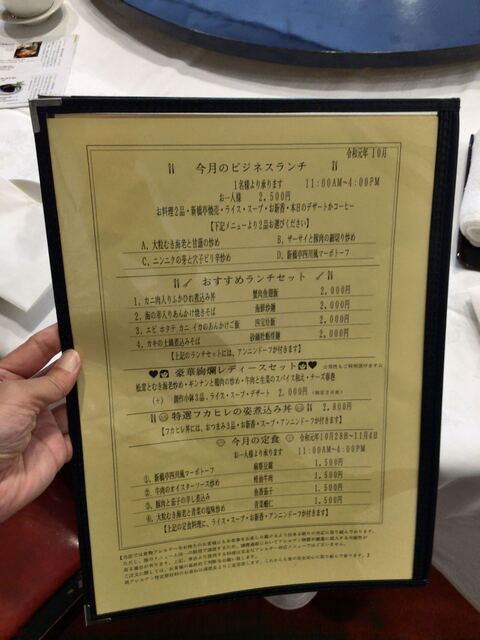 令和元年 10月
今月のビジネスランチ
1名様より承ります 11:00AM~4:00PM
お一人様 2,500円
お料理2品・新橋亭焼売・ライス・スープ・お新香・本日のデザートかコーヒー
【下記メニューより2品お選びください】
A, 大粒むき海老と甘藷の炒め B, ザーサイと豚肉の細切り炒め
C, ニンニクの芽と穴子ピリ辛炒め D, 新橋亭四川風マーボトーフ
おすすめランチセット
1, カニ肉入りふかひれ煮込み丼 蟹肉魚翅飯 2,000円
2, 海の幸入りあんかけ焼きそば 海鮮炒麺 2,000円
3, エビ、ホタテ、カニ、イカのあんかけご飯 四宝烩飯 2,000円
4, カキの土鍋煮込みそば 砂鍋牡蛎煨麺 2,000円
【上記のランチセットには、アンニンドーフが付きます】
豪華絢爛レディースセット
松茸とむき海老炒め・ギンナンと鶏肉の炒め・牛肉と生菜のスパイス和え・チーズ春巻
(+) 創作小鉢3品・ライス・スープ・デザート 2,000円
特選フカヒレの姿煮込み丼 2,800円
【フカヒレ丼には、おつまみ3品・お新香・スープ・アンニンドーフが付きます】
今月の定食 令和元年10月28日~11月4日
お一人様より承ります 11:00AM~4:00PM
①, 新橋亭四川風マーボトーフ 麻婆豆腐 1,500円
②, 牛肉のオイスターソース炒め 蚝油牛肉 1,500円
③, 豚肉と茄子の辛し煮込み 魚香茄子 1,500円
④, 大粒むき海老と青菜の塩味炒め 青菜蝦仁 1,500円
【上記の定食料理に、ライス・スープ・お新香・アンニンドーフが付きます】